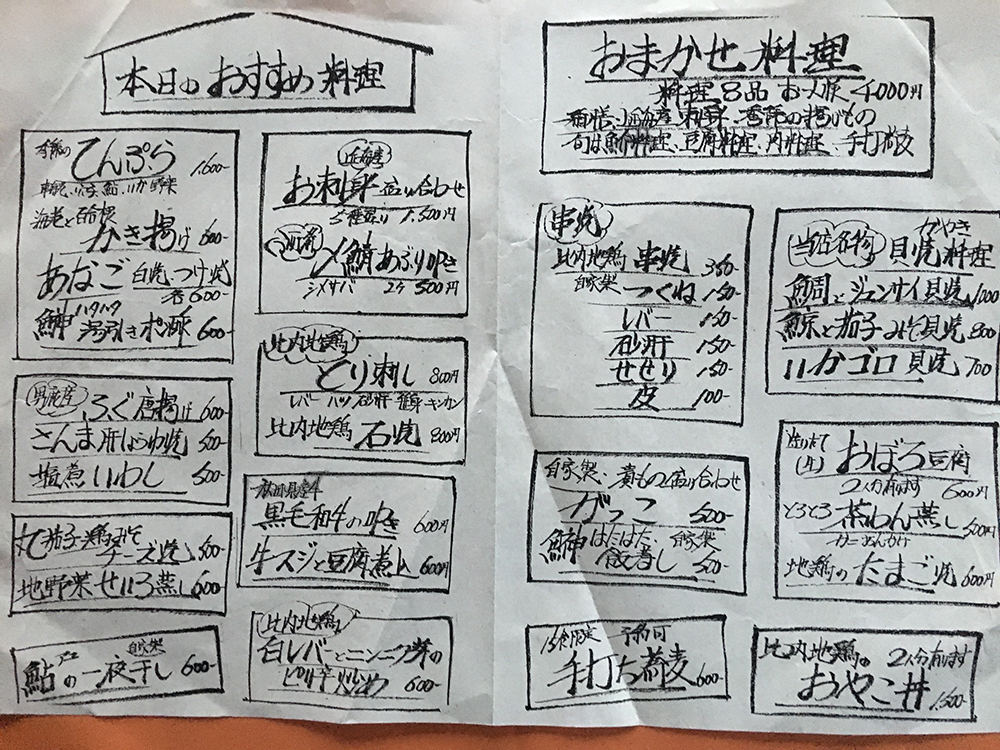 本日のおすすめ料理
季節の てんぷら 1,600-
海老と
かき揚げ 600-
あなご 白焼 つけ焼
各600-
鰰 ハタハタ 湯引きポン酢 600-
男鹿産 ふぐ唐揚げ 600-
さんま肝しょうゆ焼 500-
塩煮いわし 500-
丸茄子
チーズ焼 500-
地野菜せいろ蒸し 600-
自家製
鮎の一夜干し 600-
近海産
お刺身盛り合わせ
1,500円
〆鯖あぶり叩き
シメサバ 500円
比内地鶏
とり刺し 800円
レバー ハツ 砂肝 キンカン
比内地鶏 石焼 800円
秋田県産牛
黒毛和牛の叩き 600円
牛スジと豆腐煮込 600円
比内地鶏
白レバーとニンニク芽の
ピリ辛炒め 600-
おまかせ料理
料理8品 お一人様 4000円
刺身、季節の揚げもの
旬は魚介料理、豆腐料理、肉料理、手打蕎麦
串焼
比内地鶏 串焼 350-
自家製 つくね 150-
レバー 150-
砂肝 150-
せせり 150-
皮 100-
当店名物 かやき 貝焼料理
鯛とジュンサイ貝焼 1000
鯨と茄子みそ貝焼 800
いかゴロ貝焼 700
自家製 漬もの盛り合わせ
がっこ 500-
鰰 はたはた 自家製
飯寿し 500-
おぼろ豆腐
2人分有ります 600円
とろとろ 茶わん蒸し 500円
カニあんかけ
地鶏の たまご焼 600円
15食限定 予約可
手打ち蕎麦 600-
比内地鶏の 2人分有ります
おやこ丼 1,500-